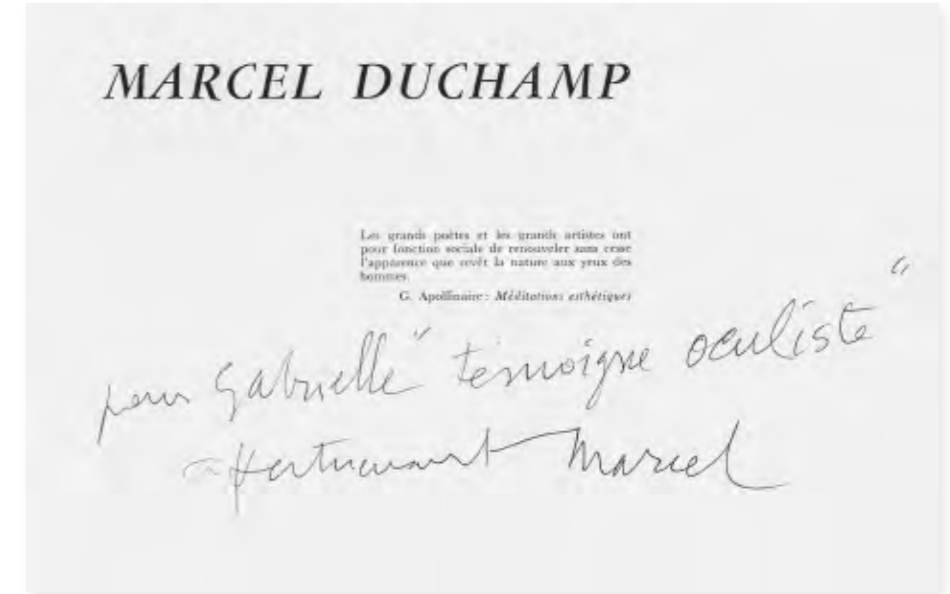 MARCEL DUCHAMP
Les grands poètes et les grands artistes ont
pour fonction sociale de renouveler sans cesse
l'apparence que revêt la nature aux yeux des
hommes.
G. Apollinaire : Méditations esthétiques
pour Gabrielle " témoigne oculiste "
affectueusement Marcel